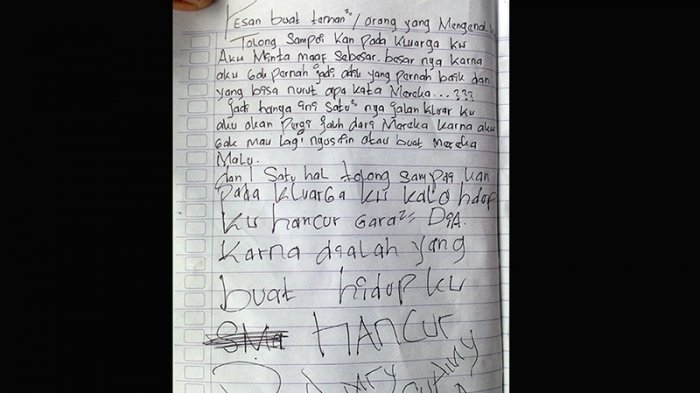 Pesan buat teman²/orang yang Mengenal
Tolong Sampai Kan pada Kluarga ku
Aku Minta maaf Sebesar. besar nya karna
aku Gak Pernah jadi adik yang pernah baik dan
yang bisa nurut apa kata Mereka...???
Jadi hanya ini Satu² nya jalan Kluar ku
aku akan Pergi Jauh dari Mereka karna aku
Gak Mau lagi ngusirin atau buat Mereka
Malu.
dan 1 Satu hal tolong sampai kan
pada kluarga ku kalo hidup
ku hancur Gara²= DiA.
Karna dialah yang
buat hidup ku
HANCUR